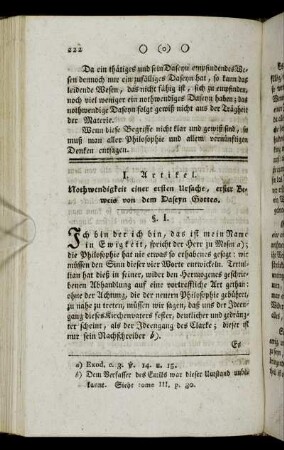 222
( o )
Da ein thätiges und sein Daseyn empfindendes We-
sen dennoch nur ein zufälliges Daseyn hat, so kann das
leidende Wesen, das nicht fähig ist, sich zu empfinden,
noch viel weniger ein nothwendiges Daseyn haben; das
nothwendige Daseyn folgt gewiß nicht aus der Trägheit
der Materie.
Wenn diese Begriffe nicht klar und gewiß sind, so
muß man aller Philosophie und allem vernünftigen
Denken entsagen.
I. Artikel.
Nothwendigkeit einer ersten Ursache, erster Be-
weis von dem Daseyn Gottes.
§. I.
Ich bin der ich bin, das ist mein Name
in Ewigkeit, spricht der Herr zu Mosen a);
die Philosophie hat nie etwas so erhabenes gesagt: wir
müssen den Sinn dieser vier Worte entwickeln. Tertul-
lian hat dieß in seiner, wider den Hermogenes geschrie-
benen Abhandlung auf eine vortreffliche Art gethan:
ohne der Achtung, die der neuern Philosophie gebühret,
zu nahe zu treten, müssen wir sagen, daß uns der Ideen-
gang dieses Kirchenvaters fester, deutlicher und gedräng-
ter scheint, als der Ideengang des Clarke; dieser ist
nur sein Nachschreiber b).
Es
a) Exod. c. 3. v. 14. u. 15.
b) Dem Verfasser des Emils war dieser Umstand unbe-
kannt. Siehe tome III. p. 40.